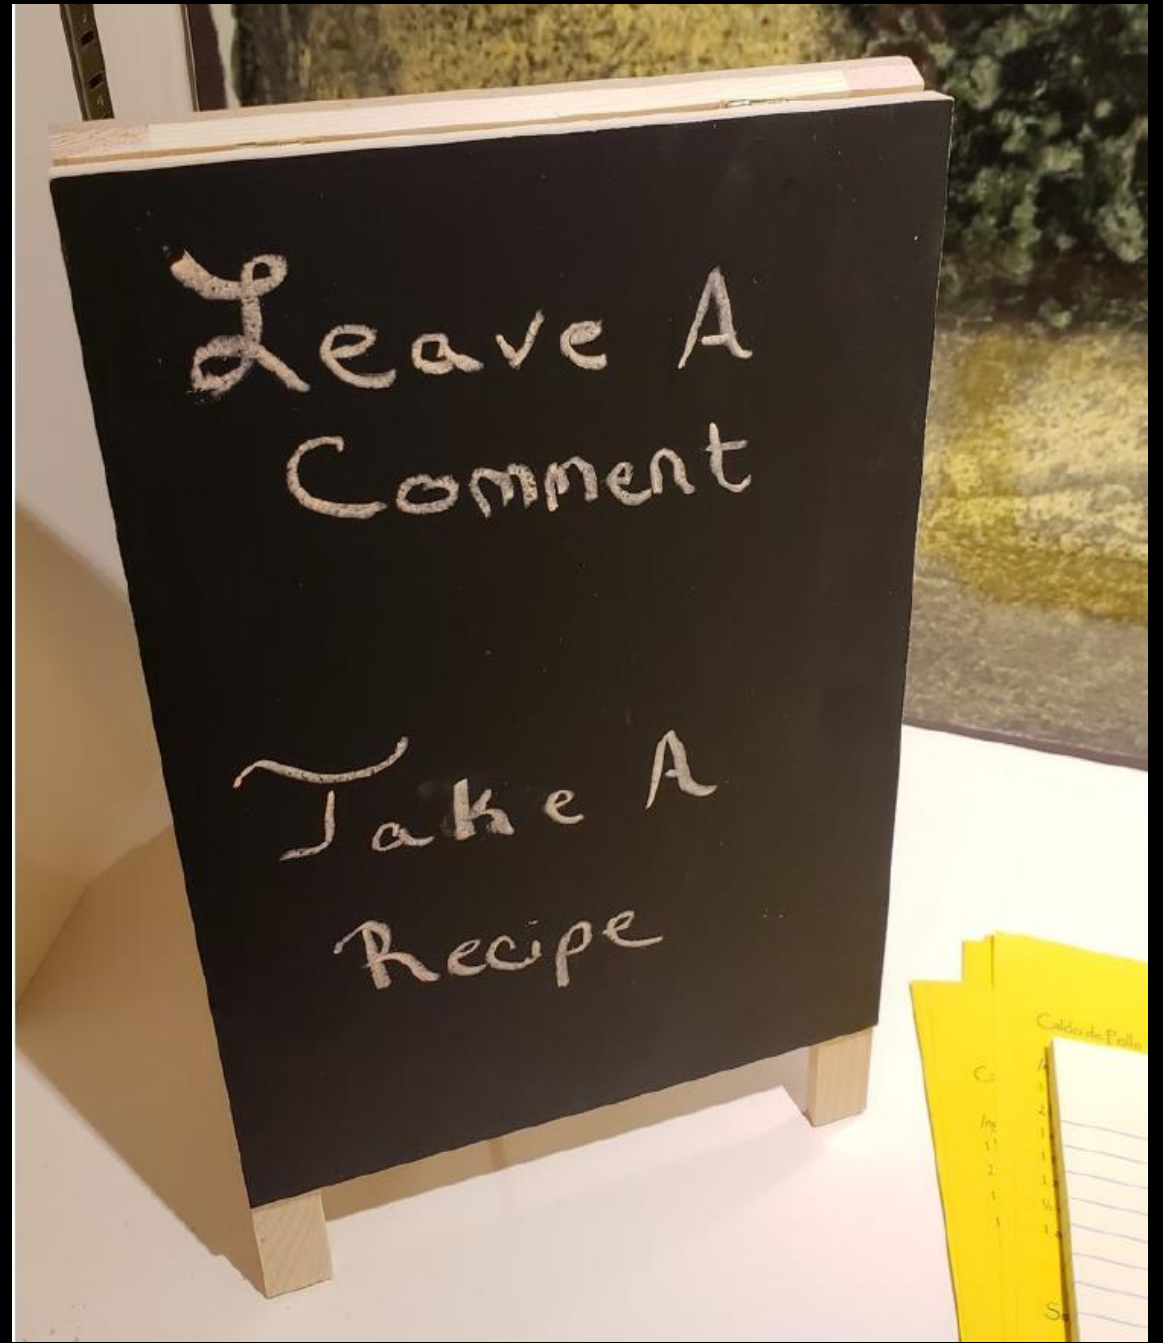 Leave A
Comment
Take A
Recipe
Caldo de Pollo